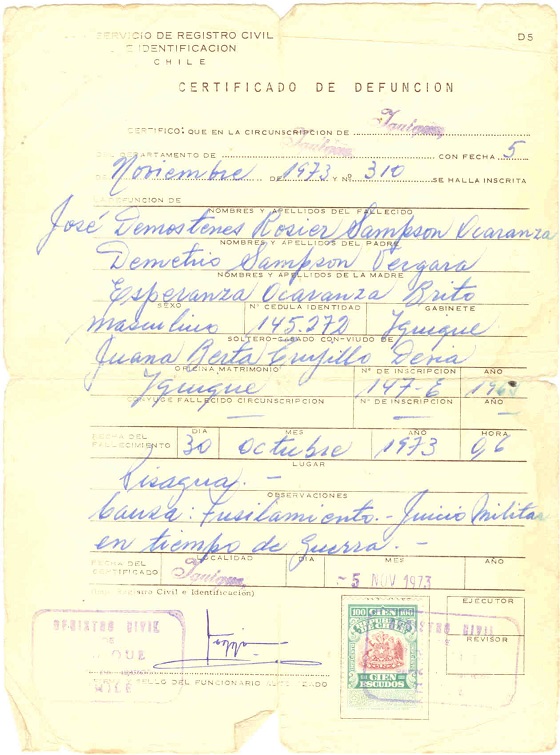 SERVICIO DE REGISTRO CIVIL
E IDENTIFICACION
CHILE
D5
CERTIFICADO DE DEFUNCION
CERTIFICO: QUE EN LA CIRCUNSCRIPCION DE Iquique
DEPARTAMENTO DE Iquique CON FECHA 5
DE Noviembre DE 1973 Y Nº 310 SE HALLA INSCRITA
LA DEFUNCION DE
José Demostenes Rosier Sampson Ocaranza
NOMBRES Y APELLIDOS DEL FALLECIDO
NOMBRES Y APELLIDOS DEL PADRE
Demetrio Sampson Vergara
NOMBRES Y APELLIDOS DE LA MADRE
Esperanza Ocaranza Brito
SEXO Nº CEDULA IDENTIDAD GABINETE
masculino 145.272 Iquique
SOLTERO-CASADO CON-VIUDO DE
Juana Berta Trujillo
OFICINA MATRIMONIO Nº DE INSCRIPCION AÑO
Iquique 147-E
CONYUGE FALLECIDO CIRCUNSCRIPCION Nº DE INSCRIPCION AÑO
— — —
DIA MES AÑO HORA
FECHA DEL FALLECIMIENTO 30 octubre 1973 06
LUGAR
Pisagua.-
OBSERVACIONES
Causa: Fusilamiento.- Juicio Militar
en tiempo de guerra.-
LOCALIDAD DIA MES AÑO
FECHA DEL CERTIFICADO Iquique - 5 NOV 1973
Registro Civil e Identificación)
EJECUTOR
REVISOR
REGISTRO CIVIL
CHILE
100 CIEN 100
CIEN
ESCUDOS
REGISTRO CIVIL
SELLO DEL FUNCIONARIO